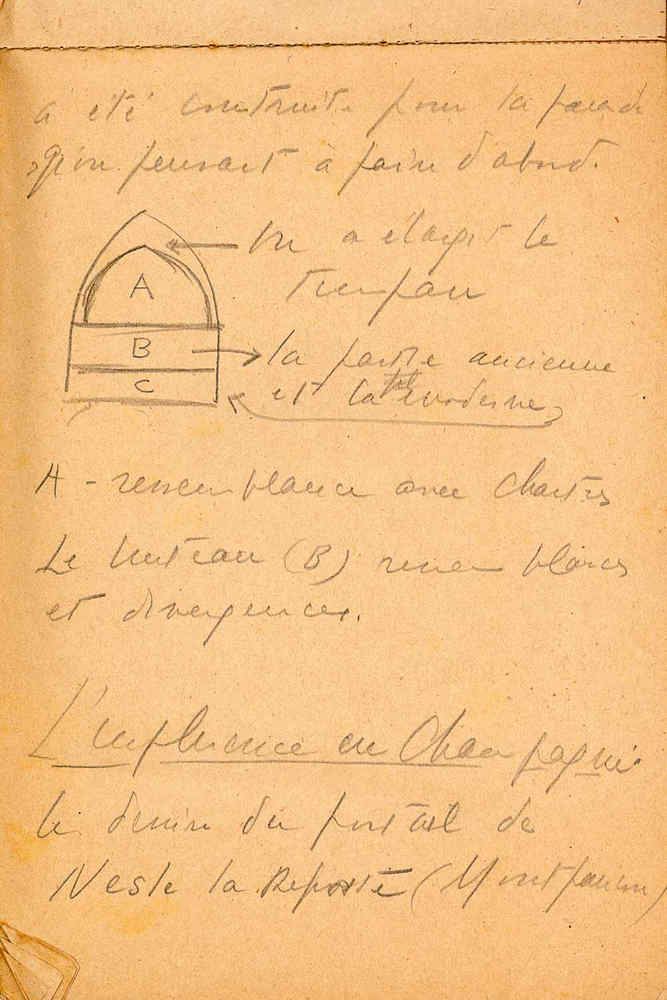 a été construite pour la façade
qu'on pensait a faire d'abord.
On a élargit le
Tympan
A
B
C
la partie ancienne
et la moderne
A - ressemblance avec Chartres
Le linteau (B) ressemblances
et divergences.
L'influence en Champagne
le dessin du portail de
Nesle la Reposte (Montfaucon)